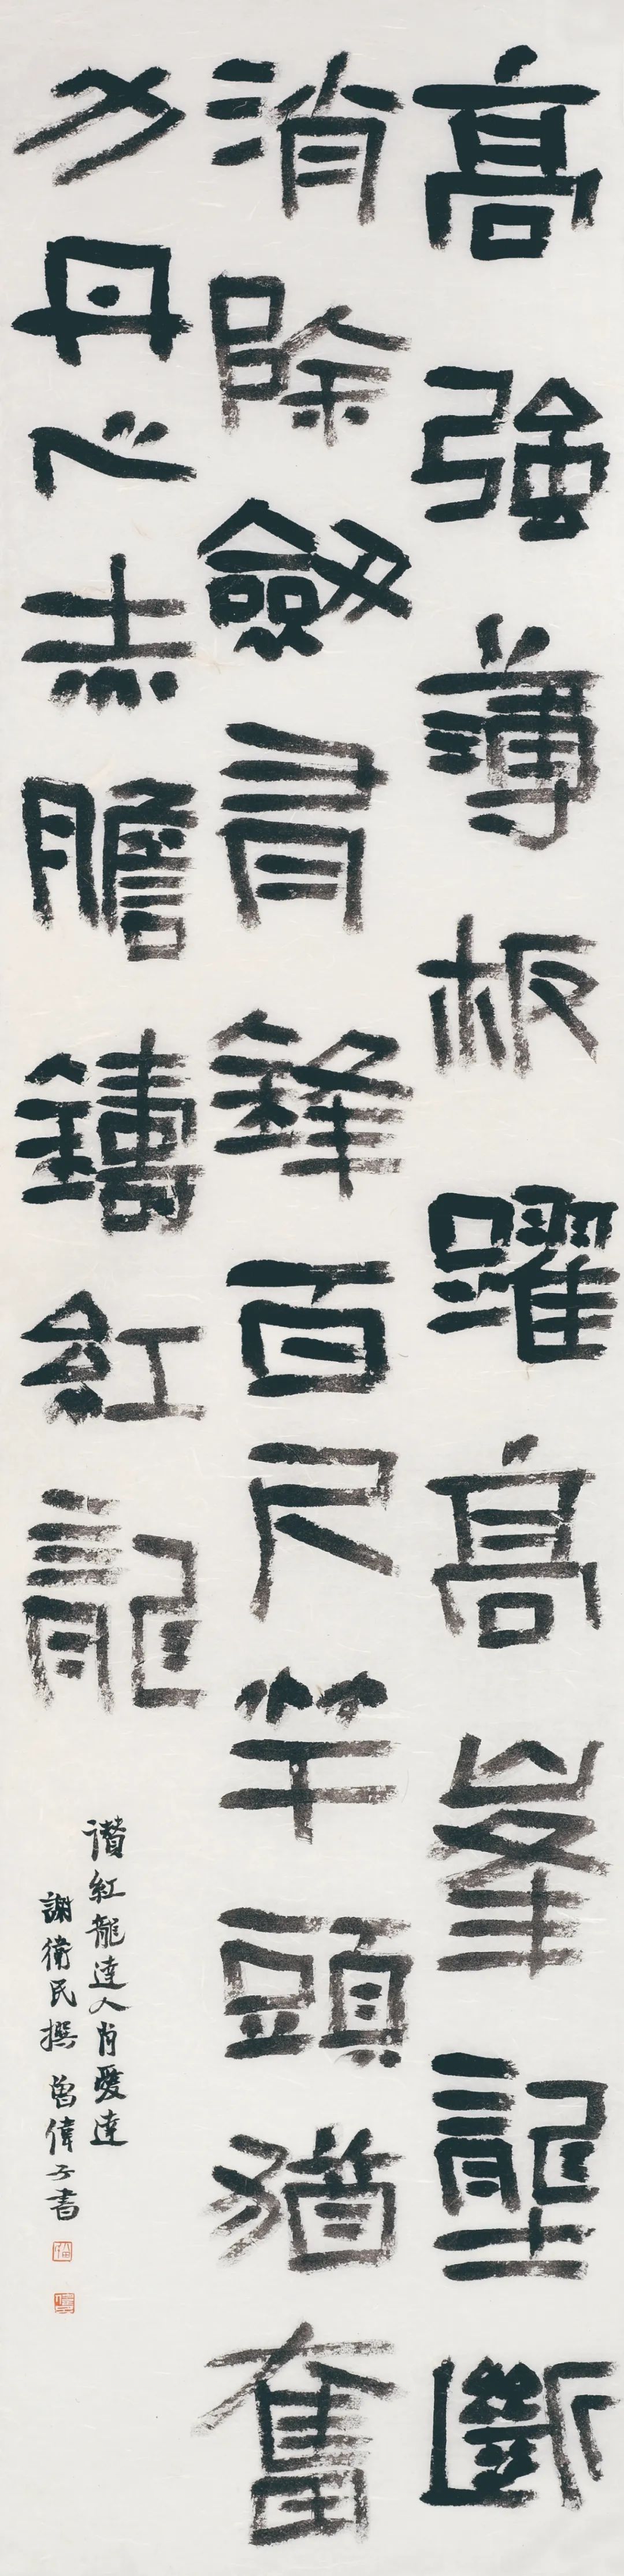 高強薄板躍高峯壟斷
消除劔有鋒百尺竿頭猶奮
力丹心赤膽鑄紅龍
讚紅龍達人肖愛達
謝衛民撰 曾偉子書